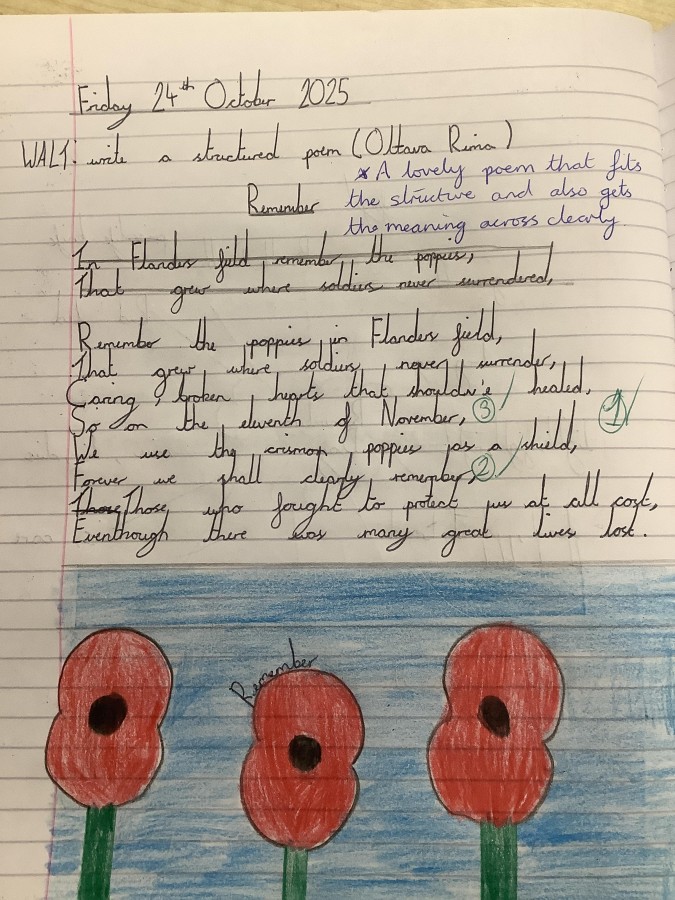 Friday 24th October 2025
WALT: write a structured poem (Ottava Rima)
* A lovely poem that fits
the structure and also gets
the meaning across clearly.
Remember
In Flanders field remember the poppies,
That grew where soldiers never surrendered,
Remember the poppies in Flanders field,
That grew where soldiers never surrender,
Caring, broken hearts that should've healed, 1
So on the eleventh of November, 3
We use the crismon poppies as a shield,
Forever we shall clearly remember, 2
Those Those, who fought to protect us at all cost,
Eventhough there was many great lives lost.
Remember